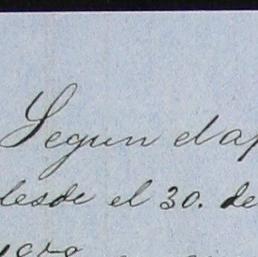 Segun el ap
desde el 30. de